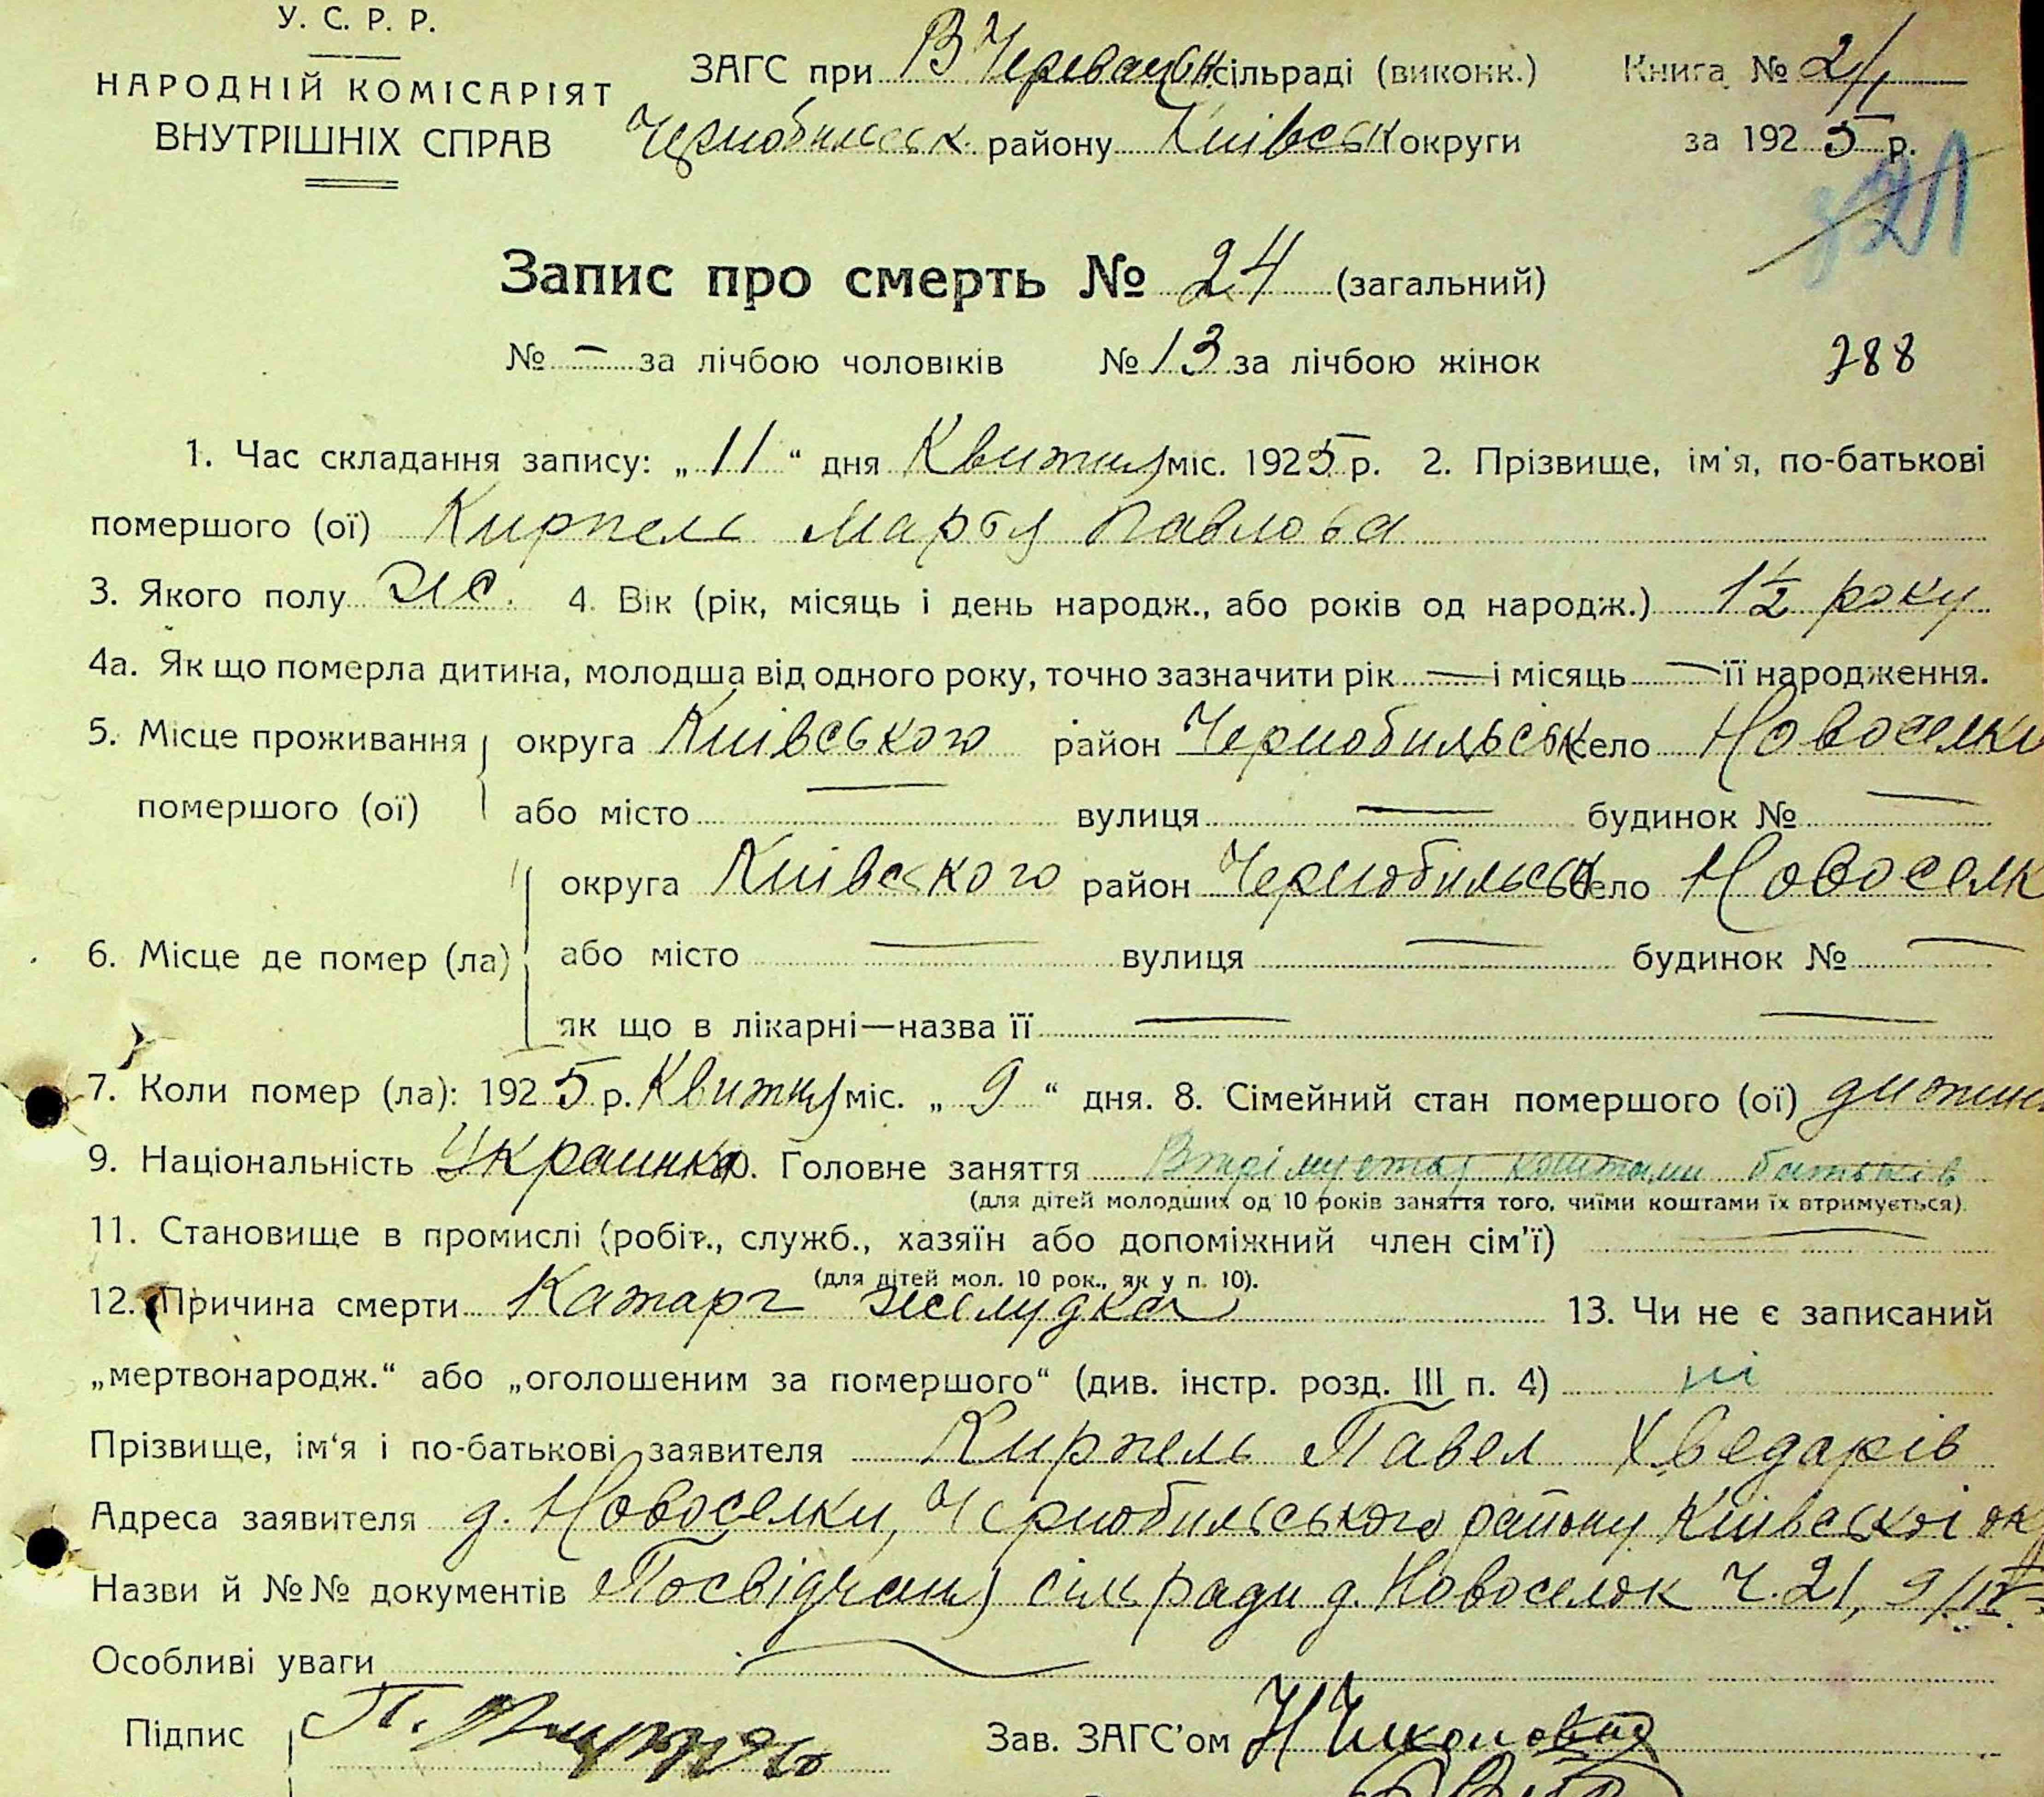 У. С. Р. Р.
НАРОДНІЙ КОМІСАРІЯТ
ВНУТРІШНІХ СПРАВ
ЗАГС при В Черевацьк. сільраді (виконк.)
Чернобильськ. району Київськ округи
Книга № 2/I
за 1925 р.
321
Запис про смерть № 24 (загальний)
№ — за лічбою чоловіків № 13 за лічбою жінок
288
1. Час складання запису: „ 11 “ дня Квитня міс. 1925 р. 2. Прізвище, ім'я, по-батькові
помершого (ої) Кирпель Марфя Павлова
3. Якого полу жс. 4. Вік (рік, місяць і день народж., або років од народж.) 1½ року
4а. Як що померла дитина, молодша від одного року, точно зазначити рік — і місяць — її народження.
5. Місце проживання помершого (ої) округа Київського район Чернобильськ село Новоселки
або місто — вулиця — будинок № —
6. Місце де помер (ла) округа Київского район Чернобильськ село Новоселк
або місто — вулиця — будинок № —
як що в лікарні—назва її — —
7. Коли помер (ла): 1925 р. Квитня міс. „ 9 “ дня. 8. Сімейний стан помершого (ої) дитин
9. Національність Украинка 10. Головне заняття Втрімуєтця коштами батьків
(для дітей молодших од 10 років заняття того, чиїми коштами їх втримується).
11. Становище в промислі (робіт., служб., хазяїн або допоміжний член сім'ї) —
(для дітей мол. 10 рок., як у п. 10).
12. Причина смерти Катарг желудка 13. Чи не є записаний
„мертвонародж.“ або „оголошеним за помершого“ (див. інстр. розд. III п. 4) ні
Прізвище, ім'я і по-батькові заявителя Кирпель Павел Хведарів
Адреса заявителя д. Новоселки, Чернобильського району Київської ок
Назви й №№ документів Посвідчання сільради д. Новоселок Ч. 21, 9/IV
Особливі уваги
Підпис П.
Зав. ЗАГС'ом